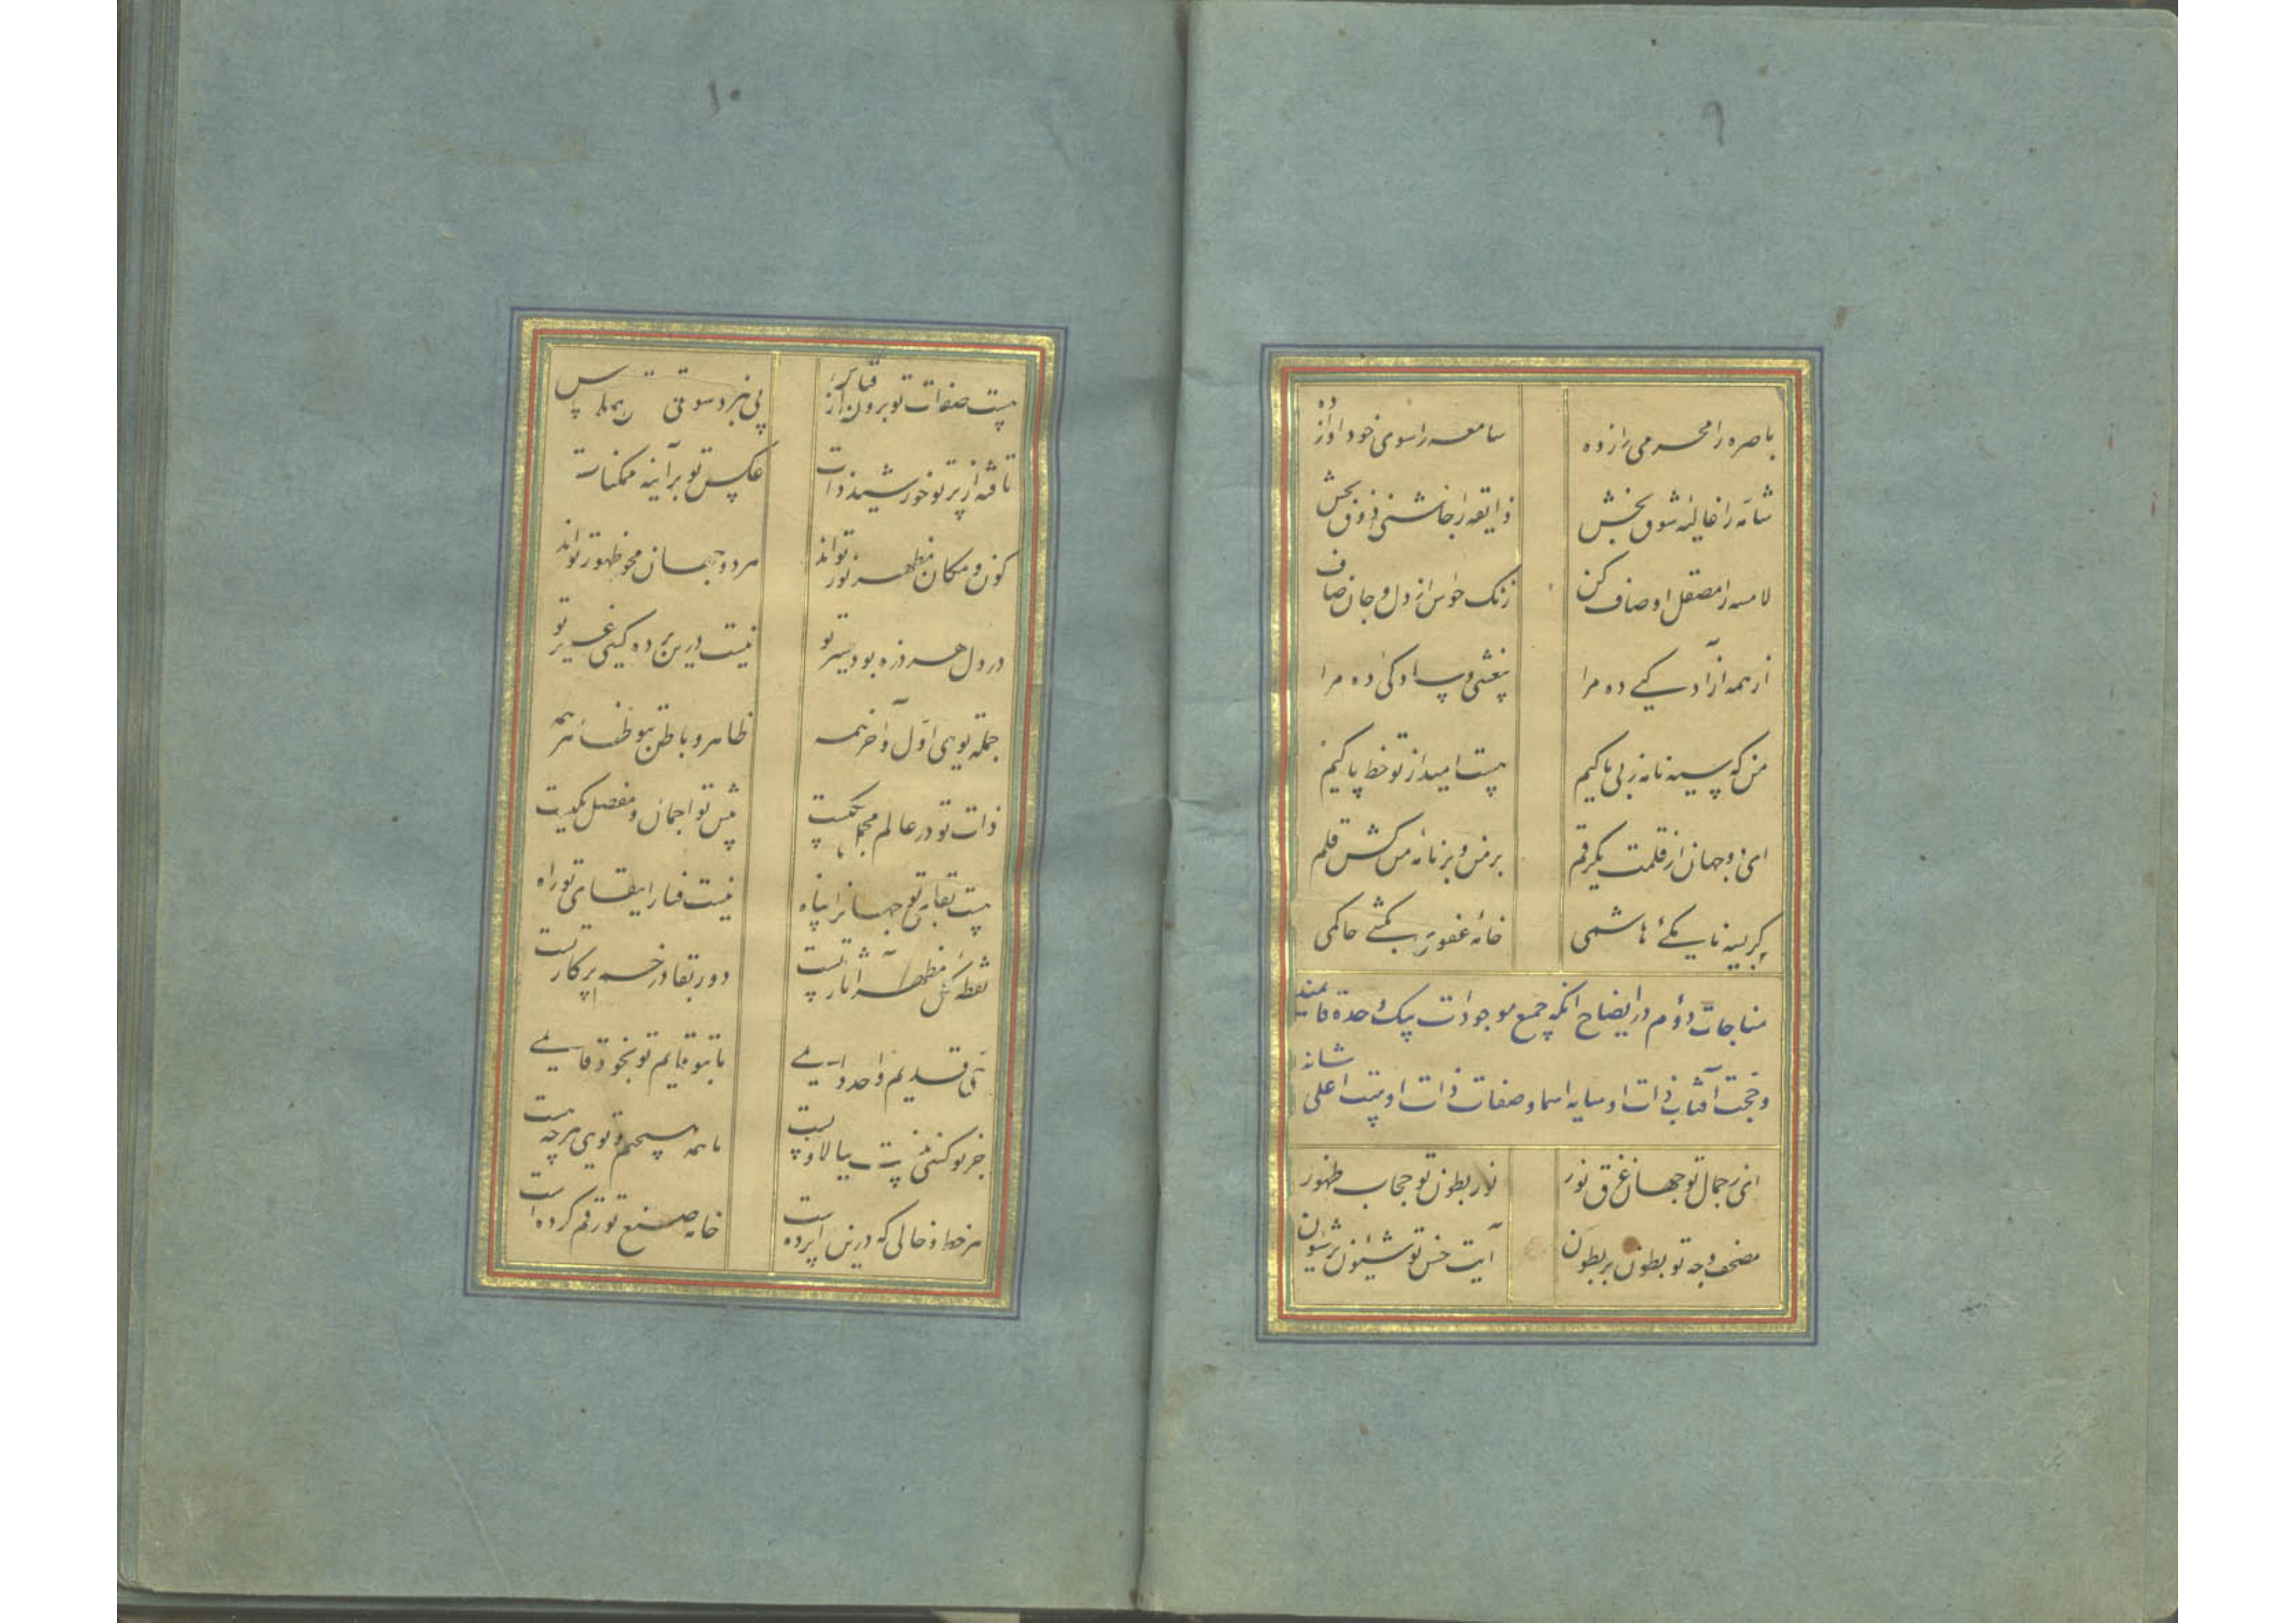 ۹
باصره را محرمی راز ده
سامعه را سوی خود آواز ده
شامه را غالیه شوق بخش
ذایقه را چاشنی ذوق بخش
لامسه را مصقل اوصاف کن
زنک حواس از دل و جان صاف
از همه آزادکیی ده مرا
بیغشی و سادکی ده مرا
من که سیه نامه ز بی باکیم
هست امید از تو خط پاکیم
ای دو جهان از قلمت یکرقم
بر من و بر نامه من کش قلم
کر سیه نامه یکی هاشمی
خامه غفوریت بکش حاکمی
مناجات دوم در ایضاح آنکه جمیع موجودات بیک احدة قایمند
و حجت آفتاب ذات او سایه اسما و صفات ذات اوست اعلی شانه
ای ز جمال تو جهان غرق نور
نور بطون تو حجاب ظهور
مصحف وجه تو بطون بر بطون
آیت حسن تو شئون بر شئون
۱۰
هست صفات تو برون از قیاس
پی نبرد سوی تو
تافته از پرتو خورشید ذات
عکس تو بر آینه ممکنات
کون و مکان مظهر نور تواند
هر دو جهان محو ظهور تواند
در دل هر ذره بود سیر تو
نیست درین پرده کسی غیر تو
جمله تویی اول و آخر همه
ظاهر و باطن بتو ظاهر همه
ذات تو در عالم مجمل یکیست
پیش تو اجمال و مفصل یکیست
هست بقای تو جهانرا پناه
نیست فنا را ببقای تو راه
نقطه کل مظهر آثار تست
دور بقا در خم پرکار تست
حی قدیم واحد دایمی
ما بتو قایم تو بخود قایمی
جز تو کسی نیست ببالا و پست
ما همه هیچیم و تویی هر چه هست
هر خط و خالی که درین پرده است
خامه صنع تو رقم کرده است